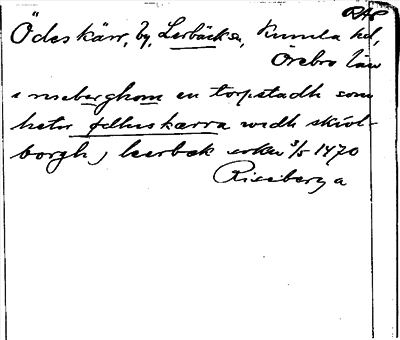 RAP
Ödeskärr, by, Lerbäcks sn, Kumla hd,
Örebro län
i niseberghom en torpstadh som
heter ødhus kærra widh skiol-
borgh, leerbek sokn 3/5 1470
Riseberga